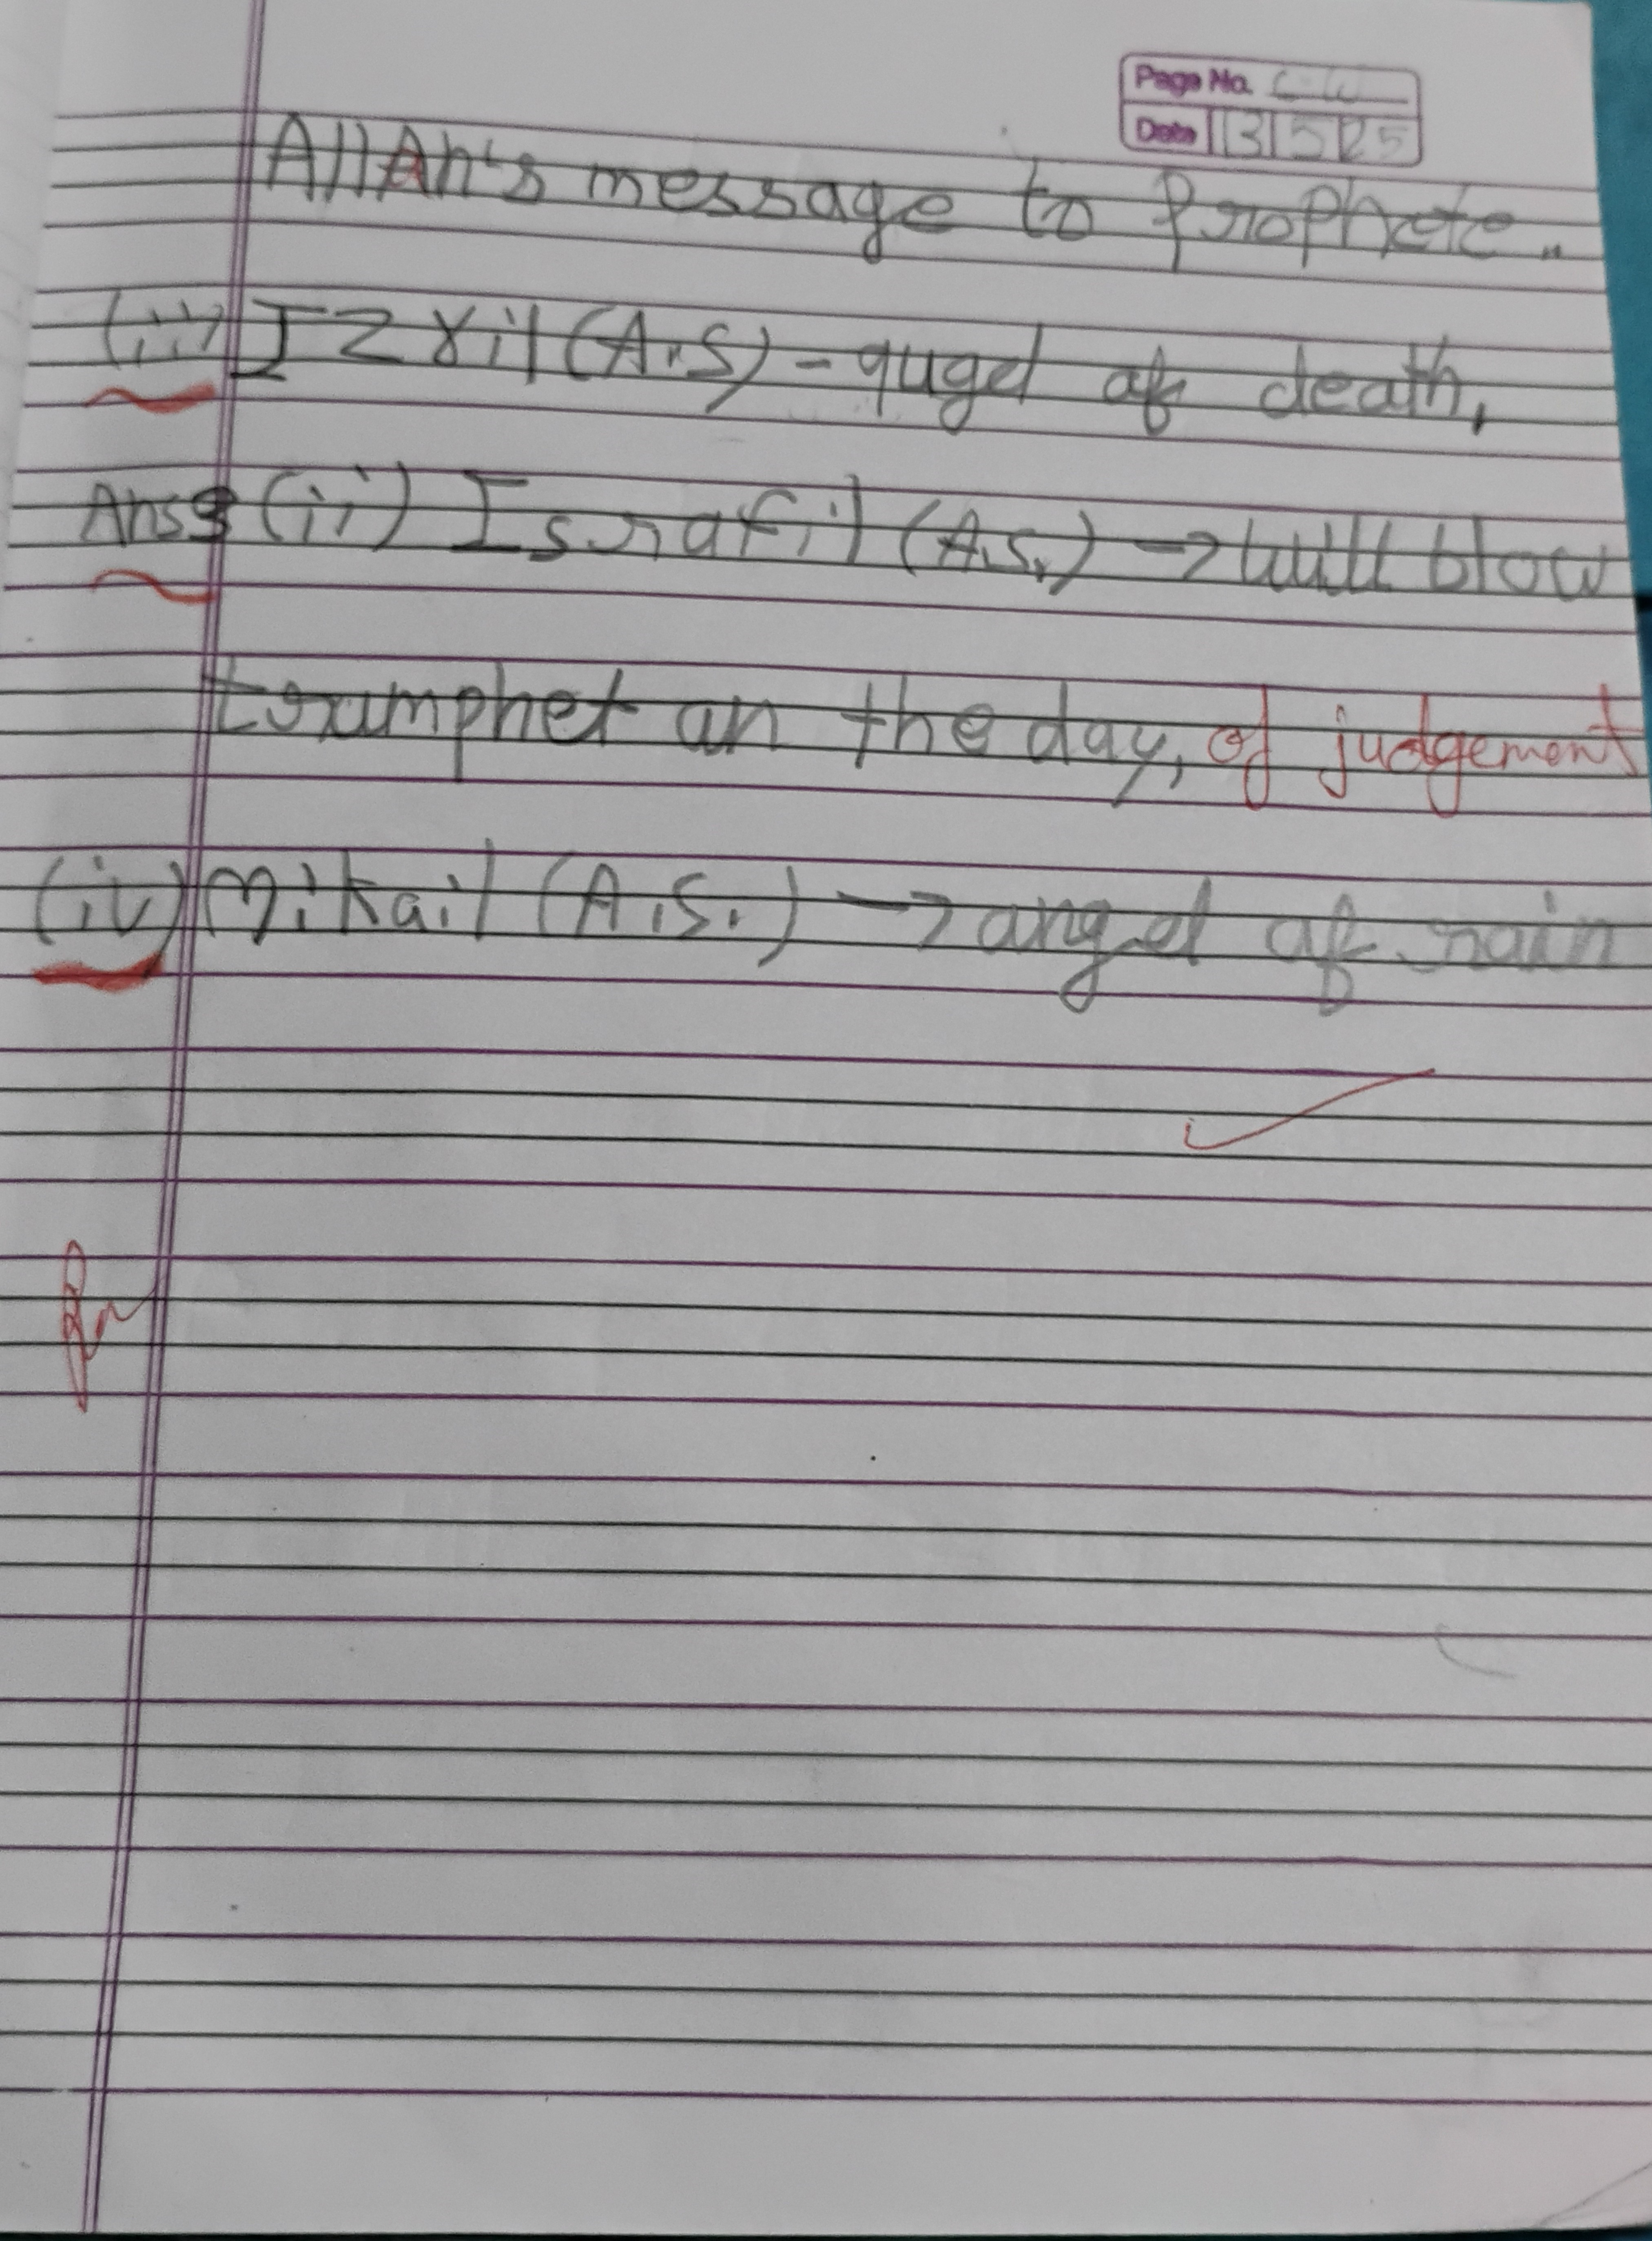 Page No. C.W
Date 13 5 25
AllAh's message to Prophete..
(iii) IZril (A.S) - qugel of death,
Ans3 (ii) Israfil (A.S.) → will blow
tramphet an the day, of judgement
(iv) Mikail (A.S.) → angel of rain